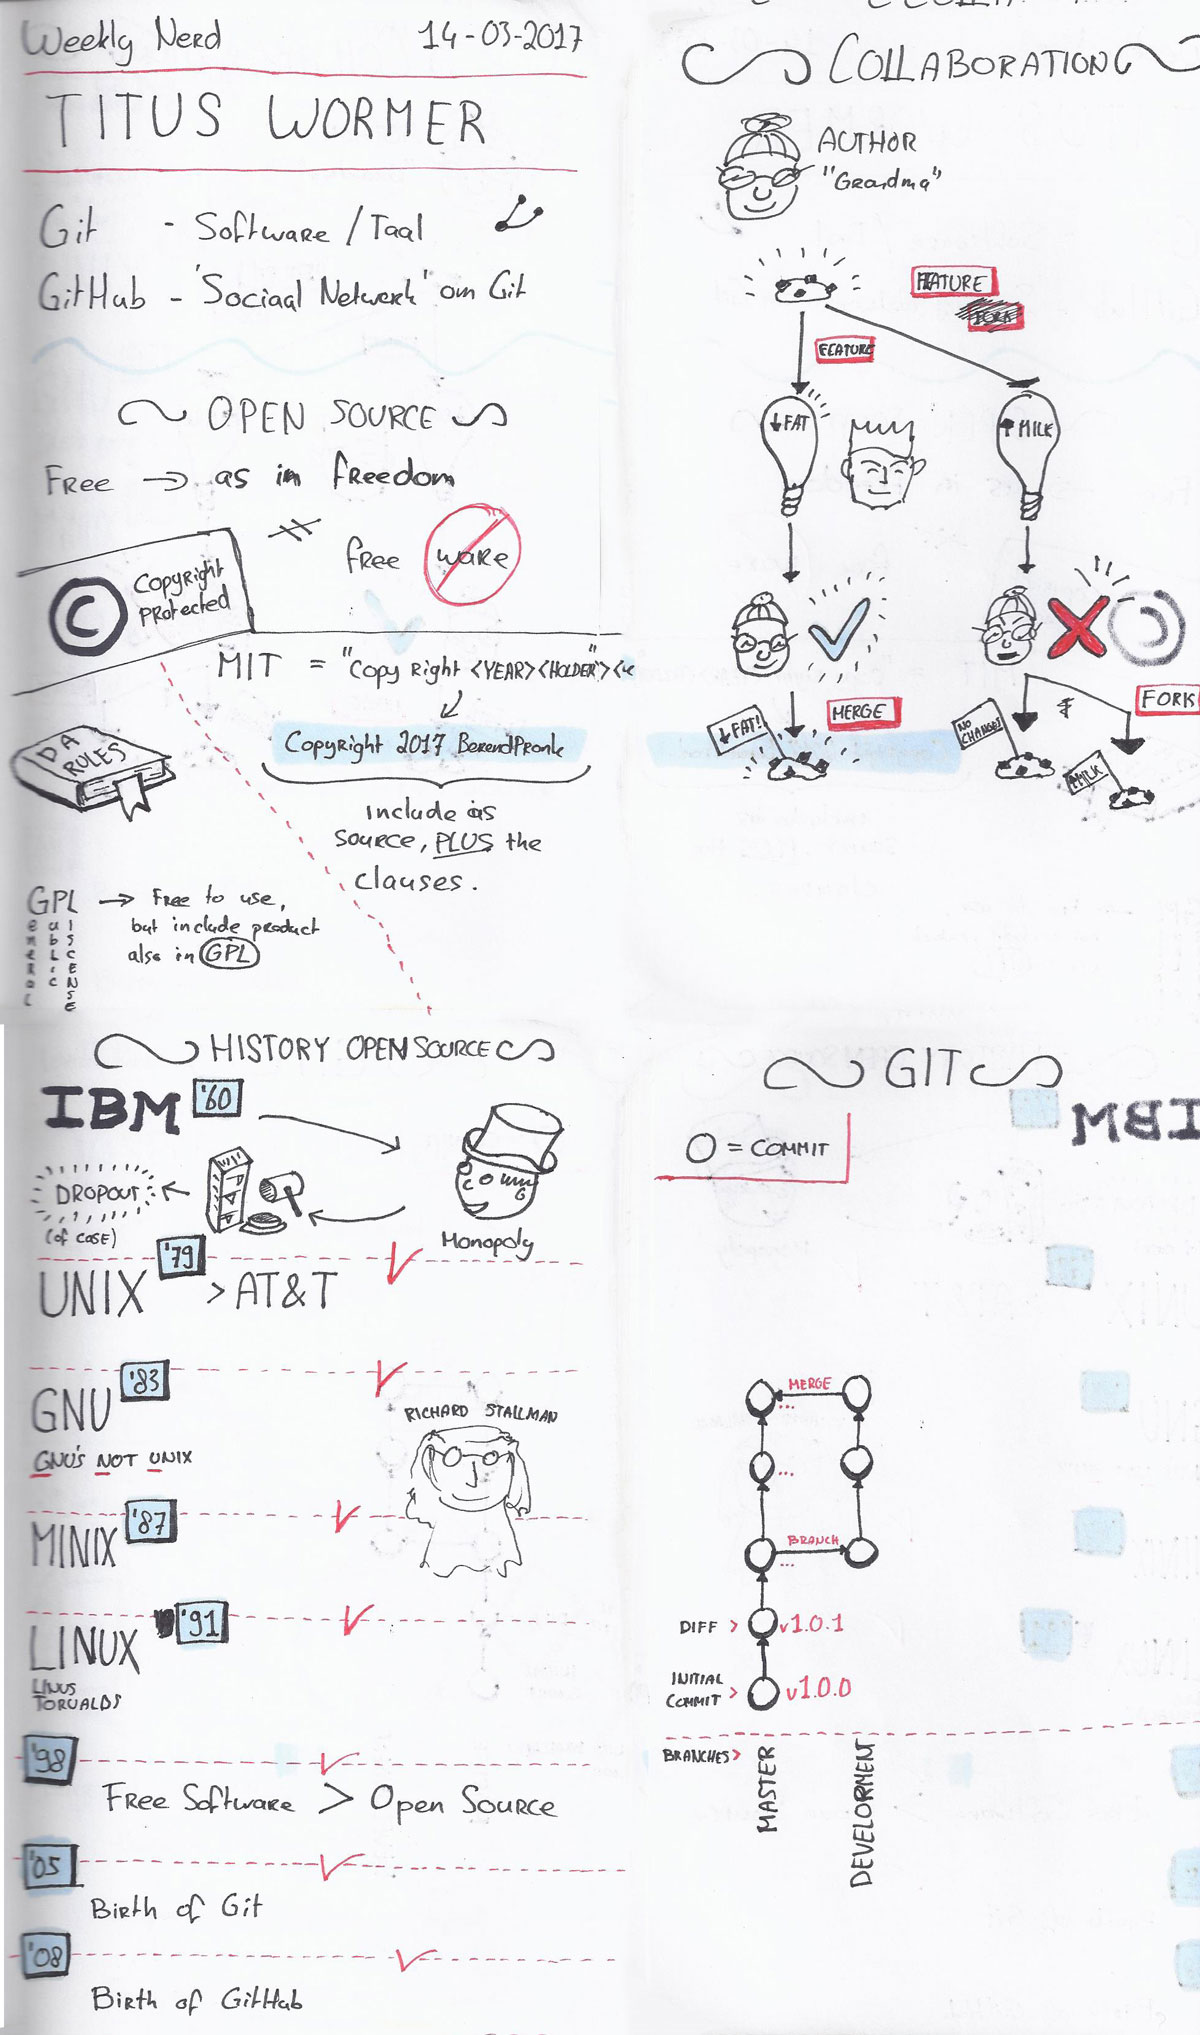 Weekly Nerd 14-03-2017
TITUS WORMER
Git - Software / Taal
GitHub - 'Sociaal Netwerk' om Git
OPEN SOURCE
Free → as in freedom
free ware
© Copyright
protected
MIT = "Copy Right <YEAR><HOLDER>"
Copyright 2017 BerendPronk
DA
RULES
include as
source, PLUS the
clauses.
GPL → Free to use,
but include product
also in GPL
General
Public
License
COLLABORATION
AUTHOR
"Grandma"
FEATURE
FORK
FEATURE
↓ FAT
↑ MILK
MERGE
FORK
↓ FAT!
NO
CHANGE!
↑MILK
HISTORY OPEN SOURCE
IBM '60
DROPOUT
(of case)
Monopoly
'79
UNIX > AT&T
'83
GNU
GNU'S NOT UNIX
RICHARD STALLMAN
'87
MINIX
'91
LINUX
LINUS
TORVALDS
'98
Free Software > Open Source
'05
Birth of Git
'08
Birth of GitHub
GIT
O = COMMIT
MERGE
...
...
BRANCH
...
DIFF > v1.0.1
INITIAL
COMMIT > v1.0.0
BRANCHES>
MASTER
DEVELOPMENT